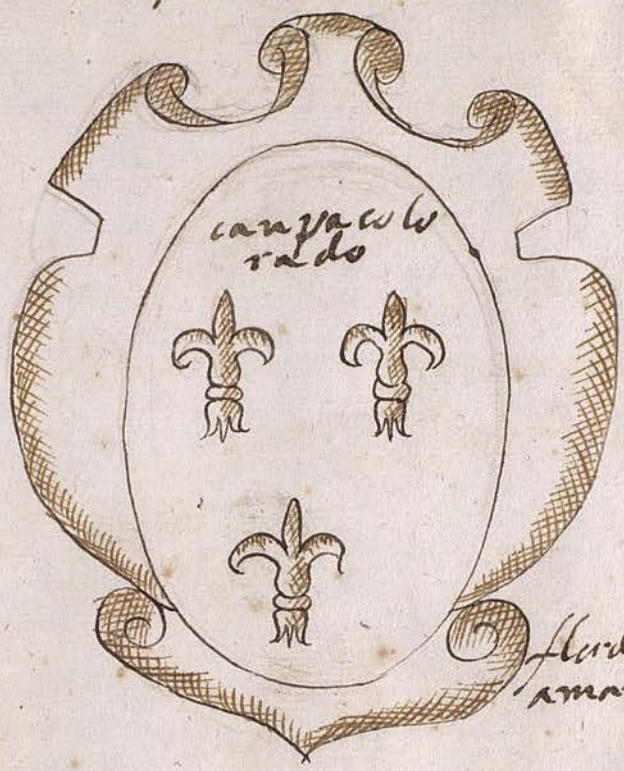 canpa colo
rado
flord
ama